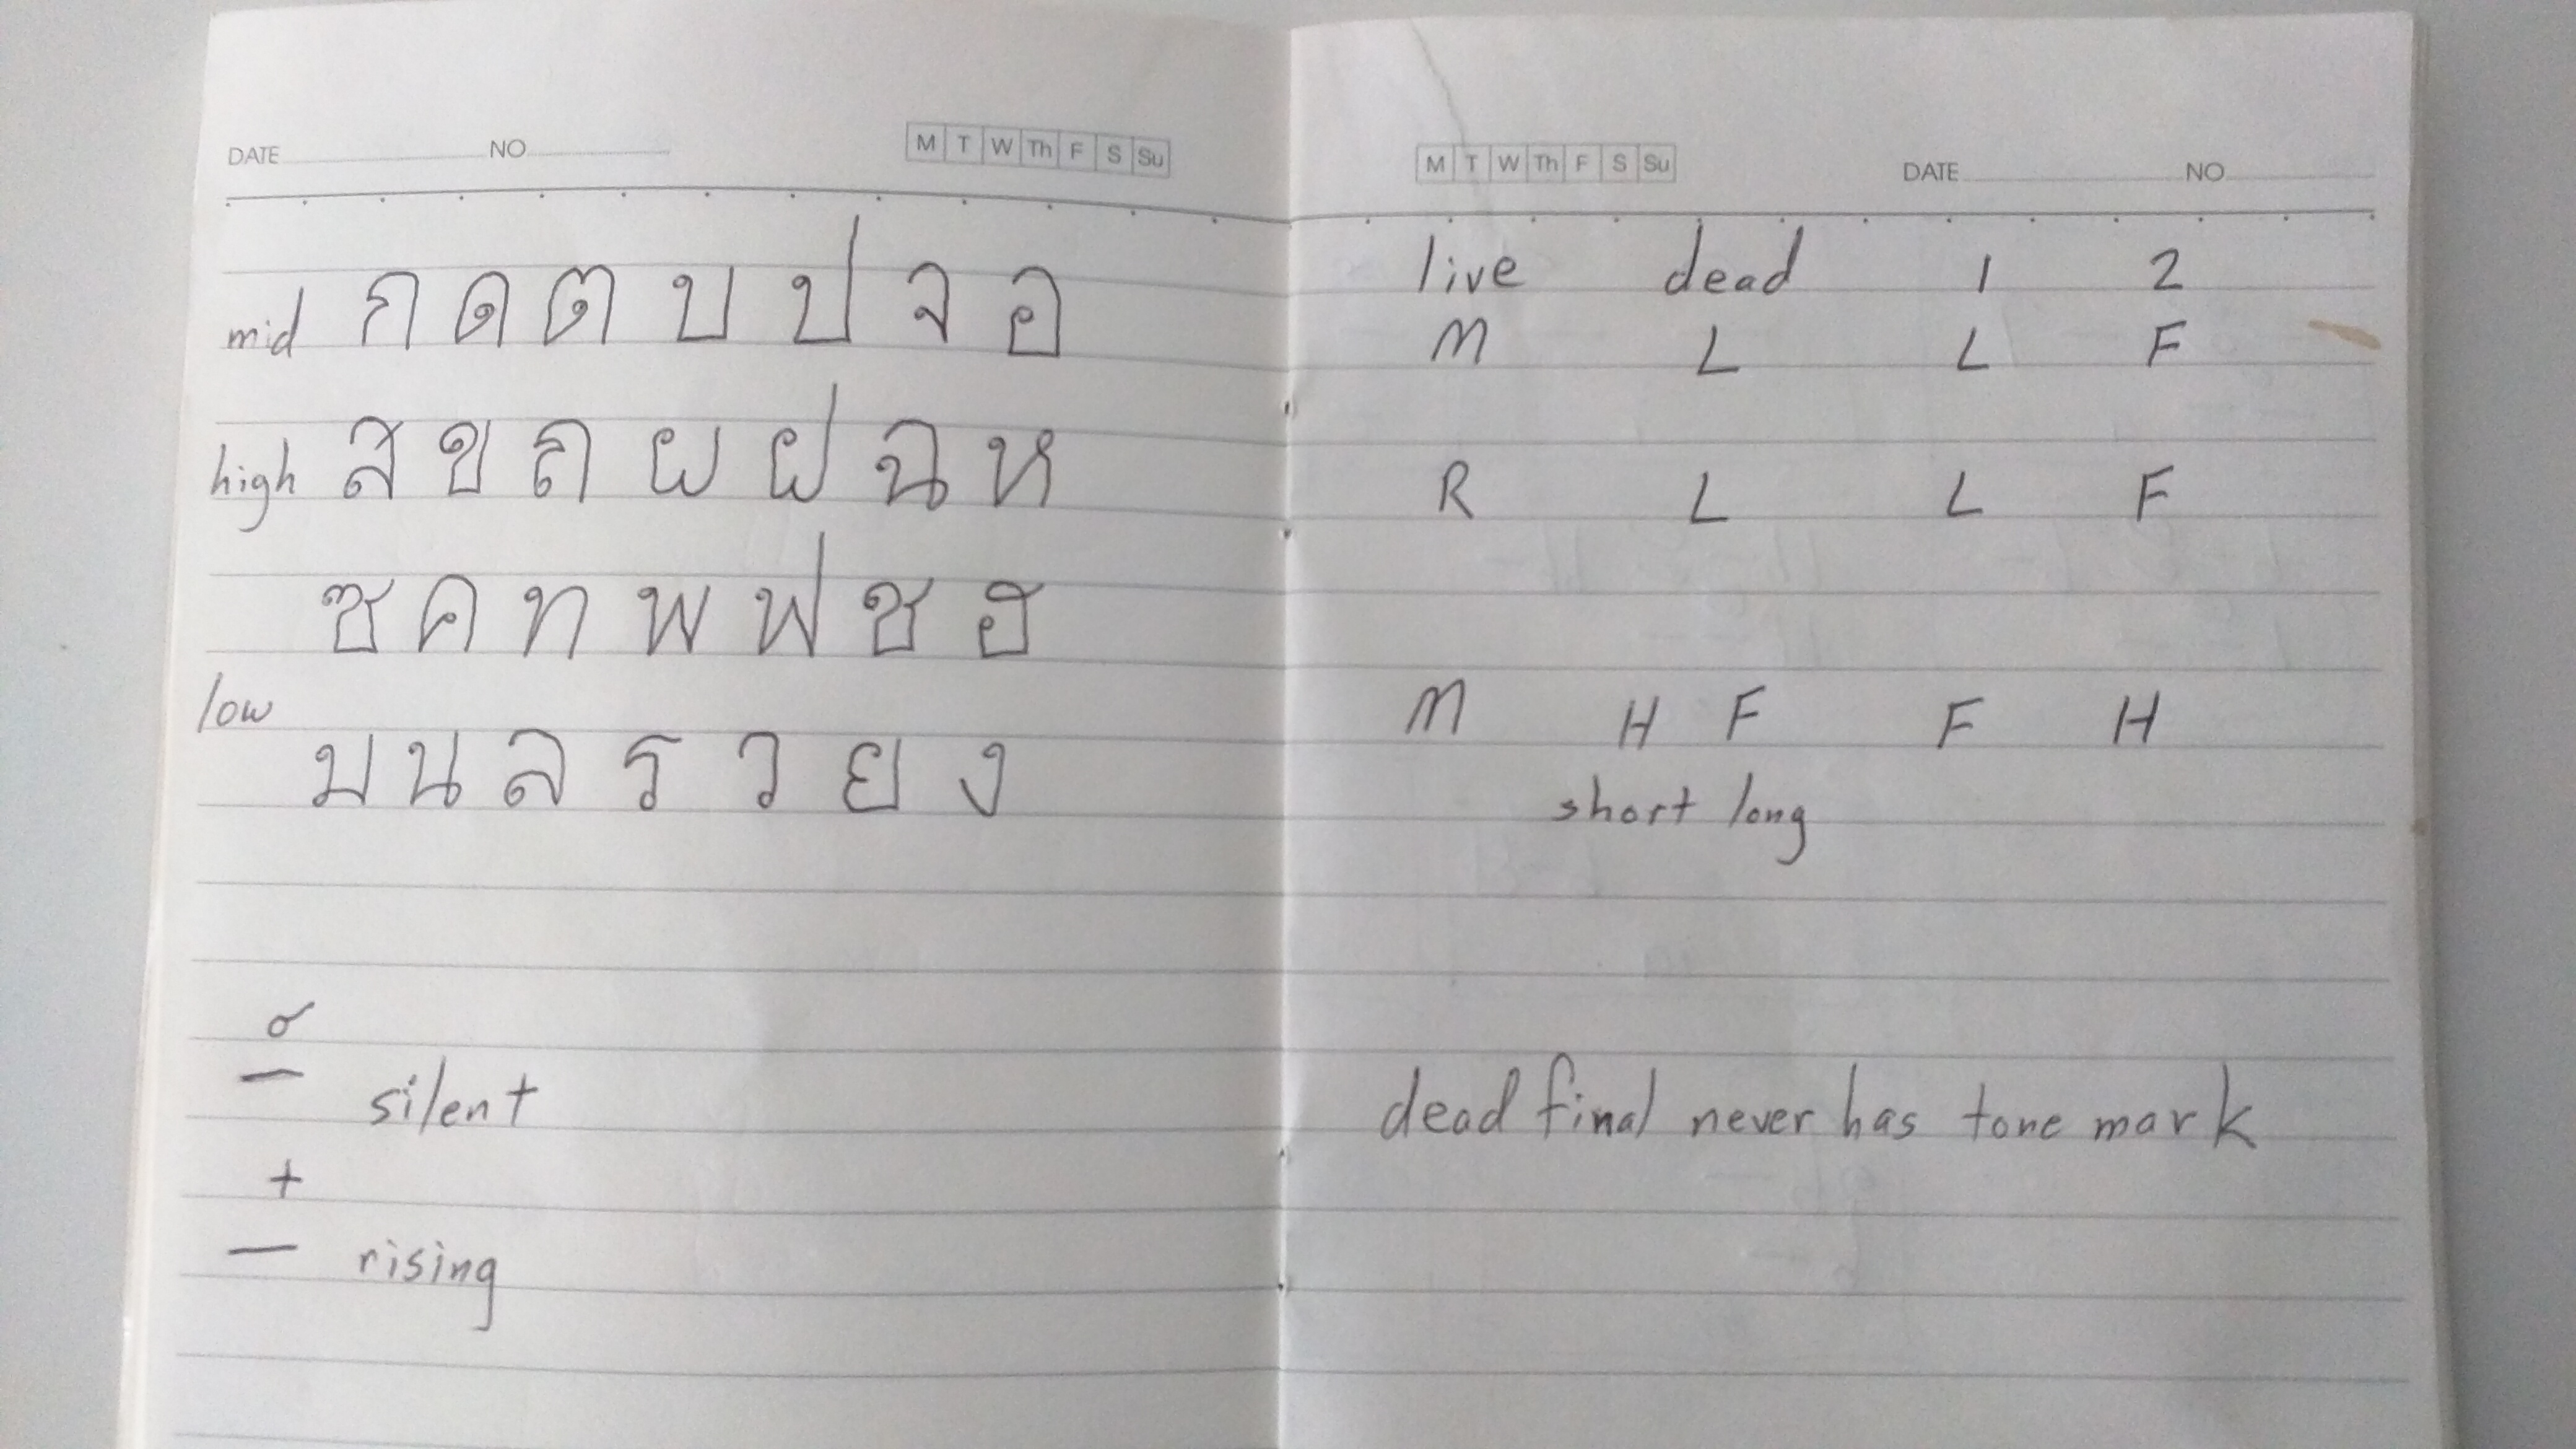 DATE NO M T W Th F S Su
mid ก ด ต บ ป จ อ
high ส ข ถ ผ ฝ ฉ ห
ซ ค ท พ ฟ ช ฮ
low
ม น ล ร ว ย ง
์
— silent
+
— rising
M T W Th F S Su DATE NO
live dead 1 2
M L L F
R L L F
M H F F H
short long
dead final never has tone mark